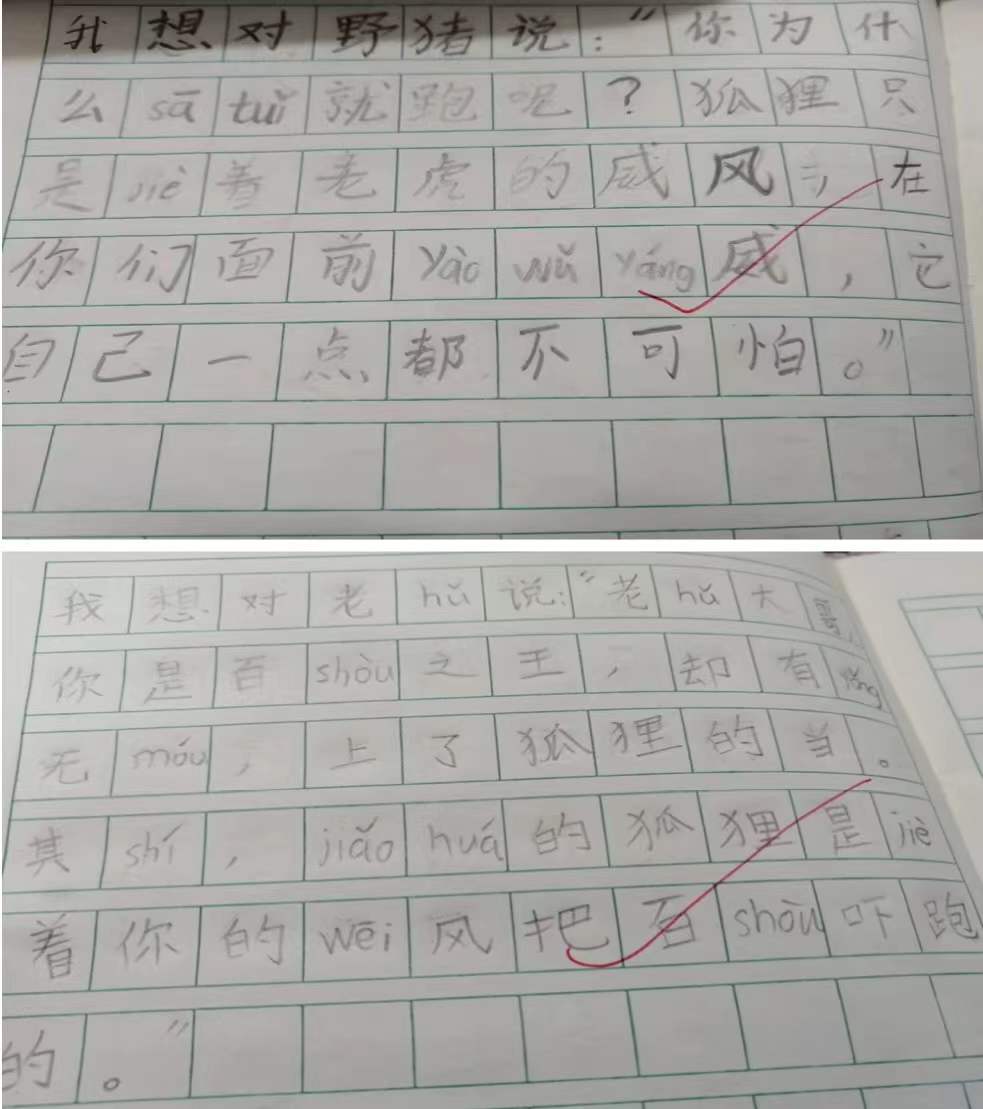 我想对野猪说：“你为什
么sā tuǐ就跑呢？狐狸只
是jiè着老虎的威风，在
你们面前yào wǔ yáng威，它
自己一点都不可怕。”
我想对老hǔ说：“老hǔ大哥，
你是百shòu之王，却有yǒng
无móu，上了狐狸的当。
其shí，jiǎo huá的狐狸是jiè
着你的wēi风把百shòu吓跑
的。”